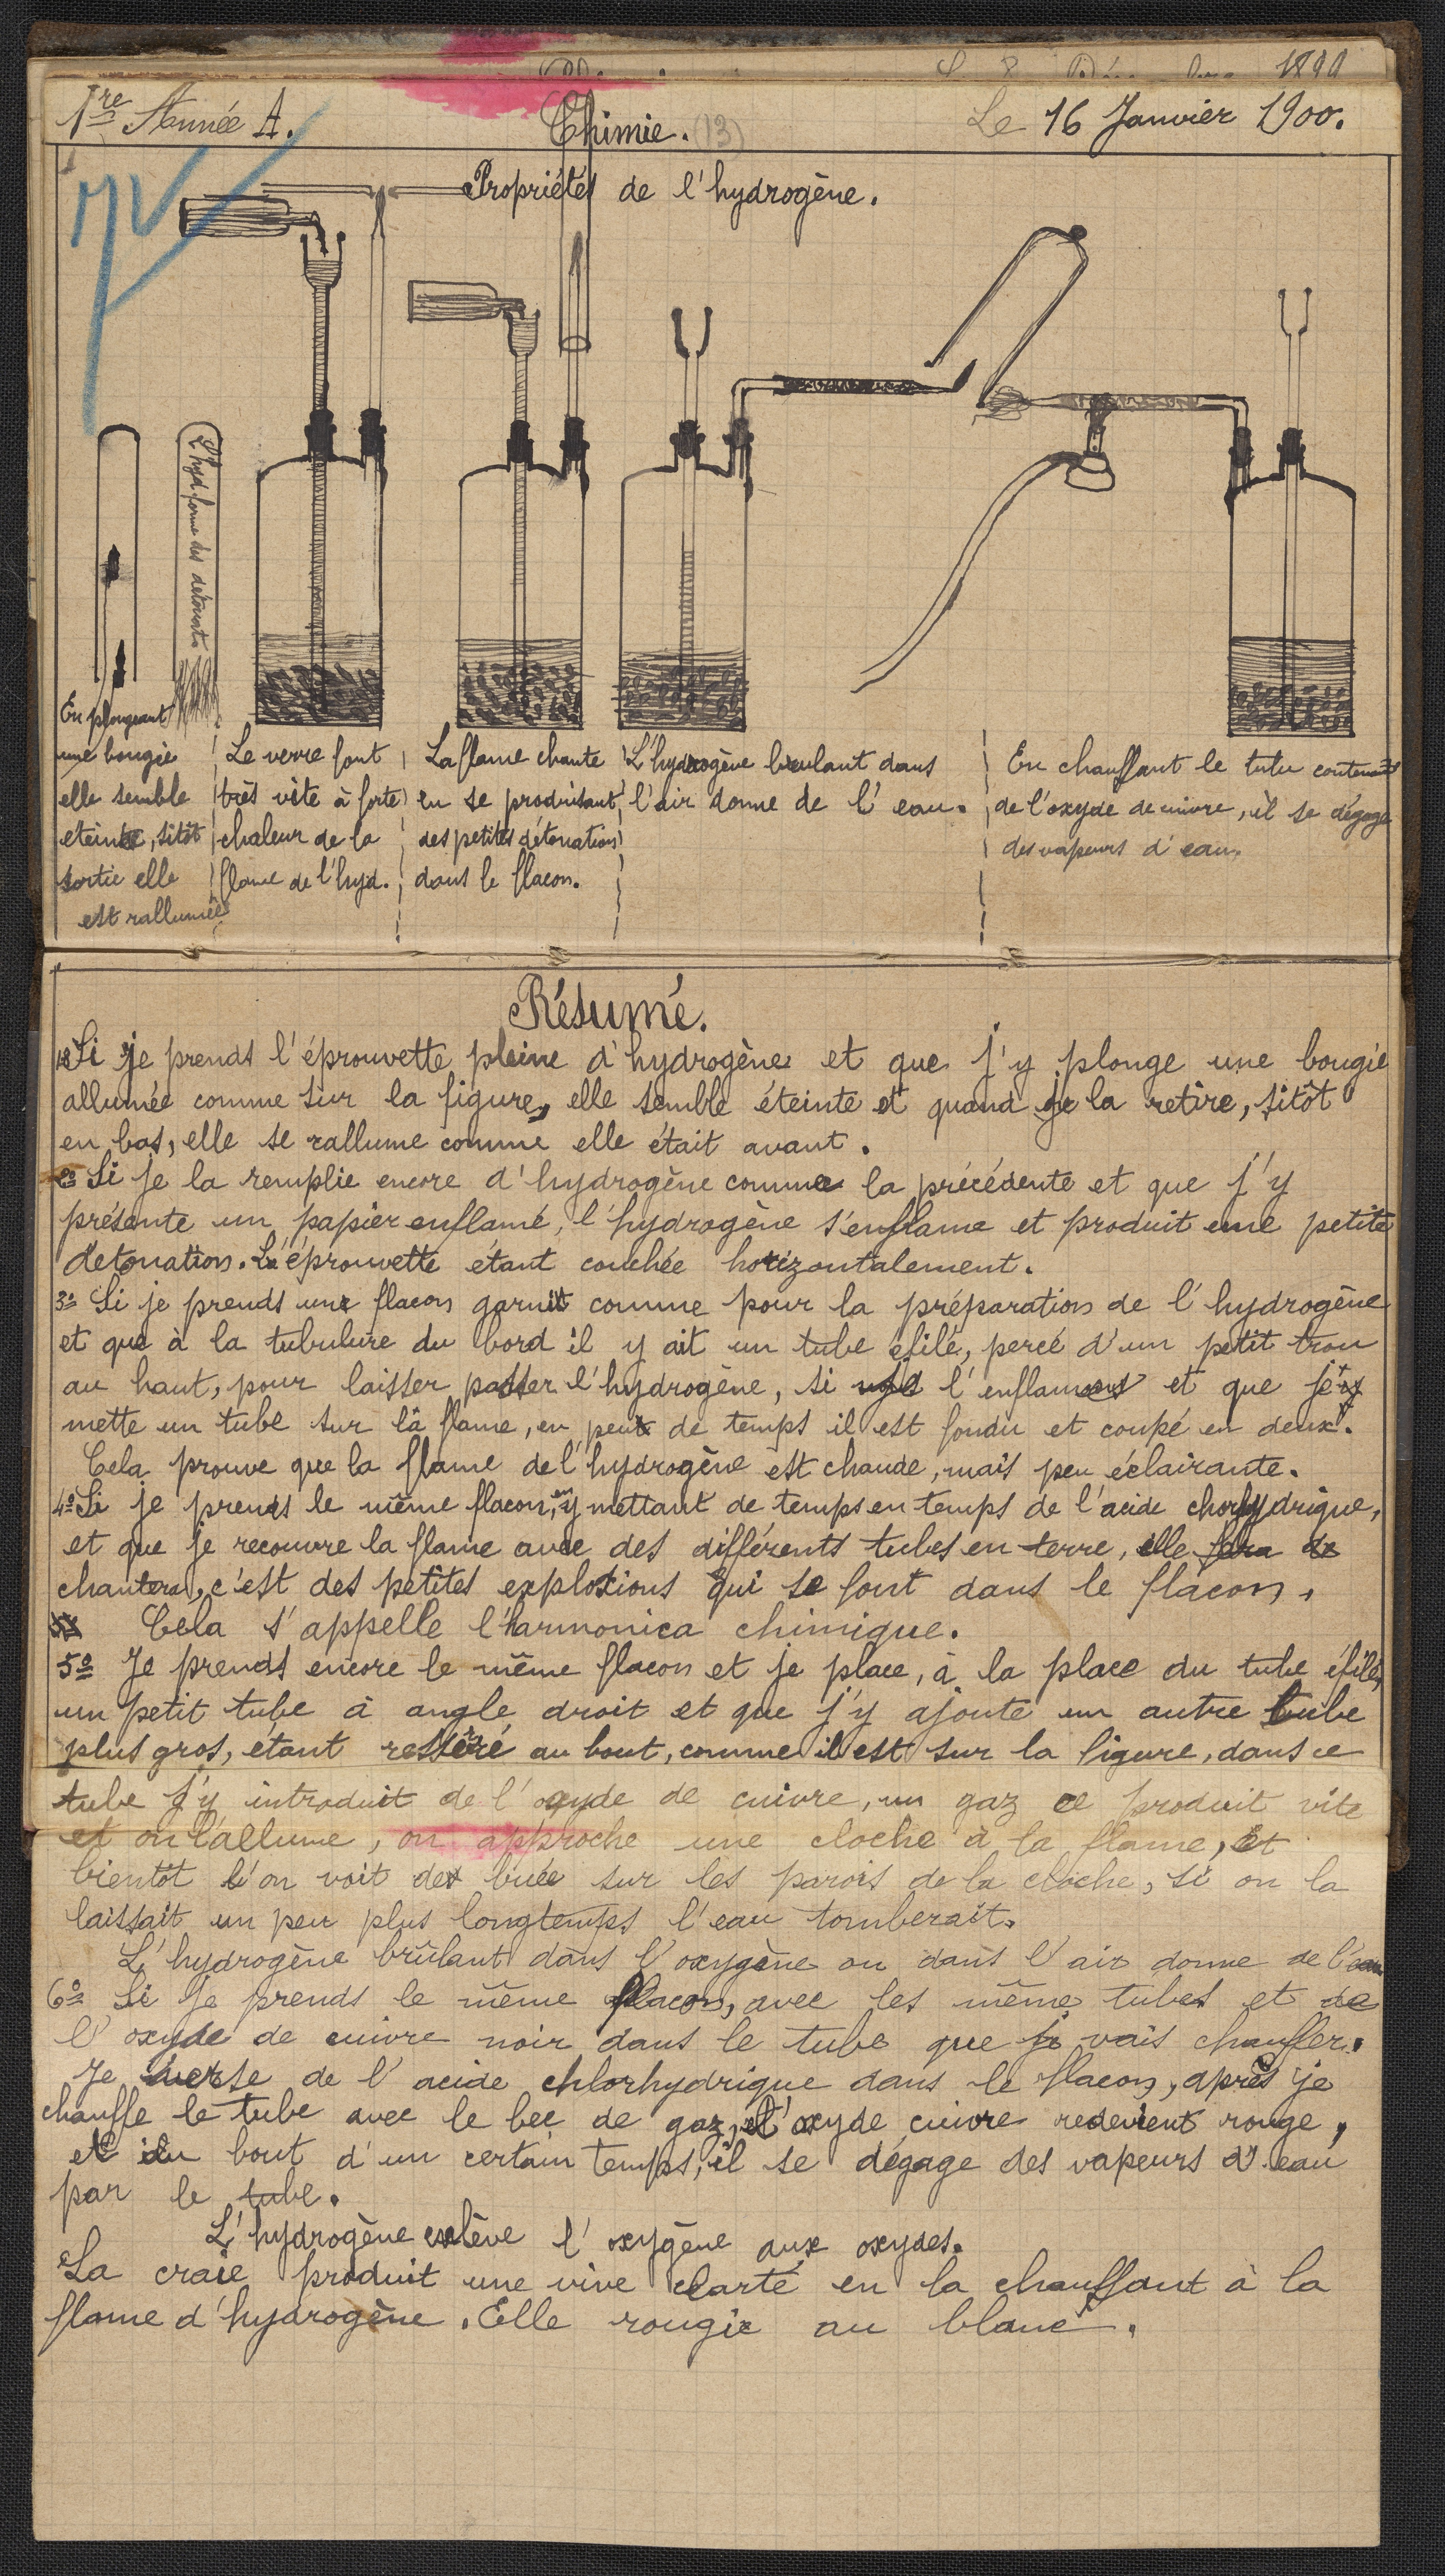 1re Année A.
Chimie. (13)
Le 16 Janvier 1900.
Propriétés de l'hydrogène.
L'hyd. forme des détonat.
En plongeant
une bougie
elle semble
eteinte, sitôt
sortie elle
est rallumée
Le verre font
très vite à forte
chaleur de la
flame de l'hyd.
La flame chante
en se produisant
des petites détonations
dans le flacon.
L'hydrogène brulant dans
l'air donne de l'eau.
En chauffant le tube contenant
de l'oxyde de cuivre, il se dégage
des vapeurs d'eau.
Résumé.
1º Si je prends l'éprouvette pleine d'hydrogène et que j'y plonge une bougie
allumée comme sur la figure, elle semble éteinte et quand je la retire, sitôt
en bas, elle se rallume comme elle était avant.
2º Si je la remplie encore d'hydrogène comme la précédente et que j'y
présente un papier enflamé, l'hydrogène s'enflame et produit une petite
détonation. L'éprouvette étant couchée horizontalement.
3º Si je prends un flacon garnit comme pour la préparation de l'hydrogène
et que à la tubulure du bord il y ait un tube éfilé, percé d'un petit trou
au haut, pour laisser passer l'hydrogène, si l'enflamons et que j'y
mette un tube sur la flame, en peu de temps il est fondu et coupé en deux.
Cela prouve que la flame de l'hydrogène est chaude, mais peu éclairante.
4º Si je prends le même flacon, en y mettant de temps en temps de l'acide chorhydrique,
et que je recouvre la flame avec des différents tubes en terre, elle fera de
chantera, c'est des petites explosions qui se font dans le flacon.
Cela s'appelle l'harmonica chimique.
5º Je prends encore le même flacon et je place, à la place du tube éfilé,
un petit tube à angle droit et que j'y ajoute un autre tube
plus gros, étant resséré au bout, comme il est sur la figure, dans ce
tube j'y introduit de l'oxyde de cuivre, un gaz ce produit vite
et on l'allume, on approche une cloche à la flame, et
bientôt l'on voit des buée sur les parois de la cloche, si on la
laissait un peu plus longtemps l'eau tomberait.
L'hydrogène brûlant dans l'oxygène ou dans l'air donne de l'eau
6º Si je prends le même flacon, avec les même tubes et de
l'oxyde de cuivre noir dans le tube que je vais chauffer.
Je verse de l'acide chlorhydrique dans le flacon, après je
chauffe le tube avec le bec de gaz, et l'oxyde cuivre redevient rouge,
et au bout d'un certain temps, il se dégage des vapeurs d'eau
par le tube.
L'hydrogène enlève l'oxygène aux oxydes.
La craie produit une vive clarté en la chauffant à la
flame d'hydrogène. Elle rougie au blanc.